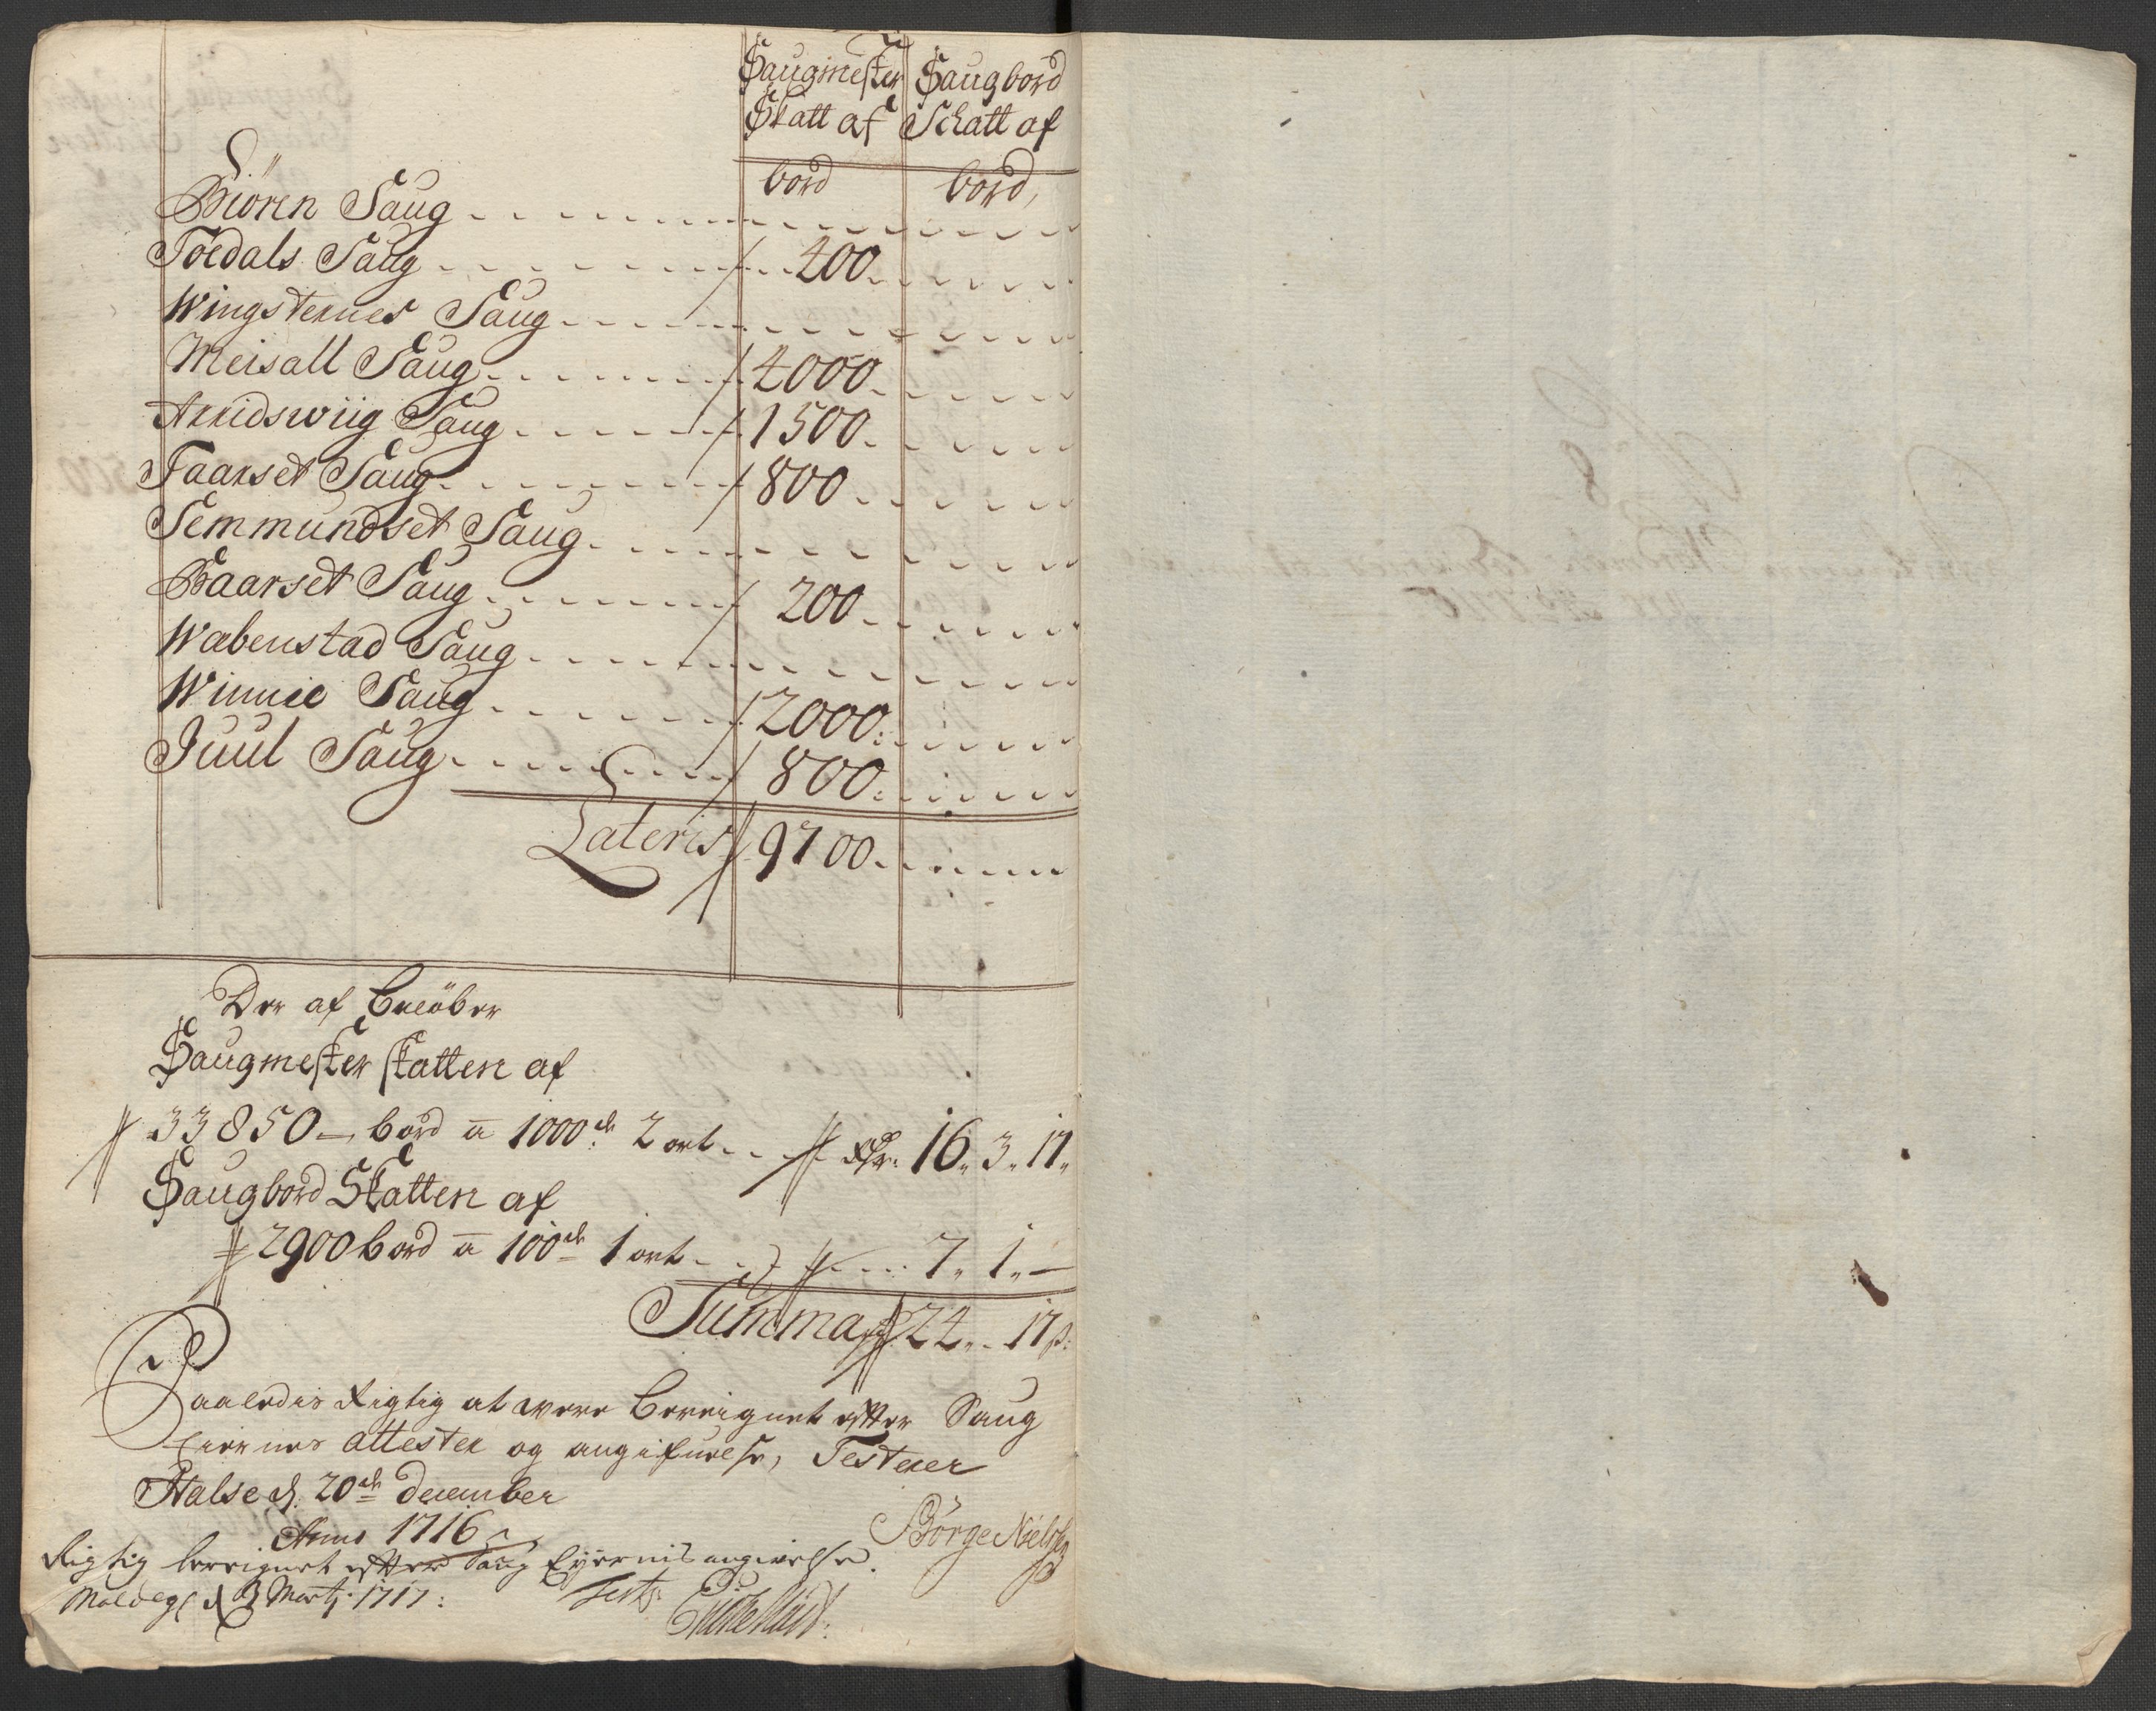 Saugmester Saugbord
Skatt af Schatt af
bord bord,
Biören Saug
Toedals Saug 400
Wingsternes Saug
Meisall Saug 4000
Arridswiig Saug 1500
Taarset Saug 800
Semmundset Saug
Baarset Saug 200
Wabenstad Saug
Winnie Saug 2000
Juul Saug 800
Lateris 9700
Der af
Saugmester skatten af
33850 bord a 1000de 2 ort 16. 3. 17.
Saugbord Skatten af
2900 bord a 100de 1 ort 7. 1. —
Summa 24.. 17 s:
Saaledis Rigtig at were Bereignet efter Saug
Eiernes attester og angifuelse, Testerer
Halse d. 20de December
Anno 1716
Börge Nielsen
Rigtig bereignet efter Saug Eyernis angivelse.
d 3 Martj: 1717:
Test: